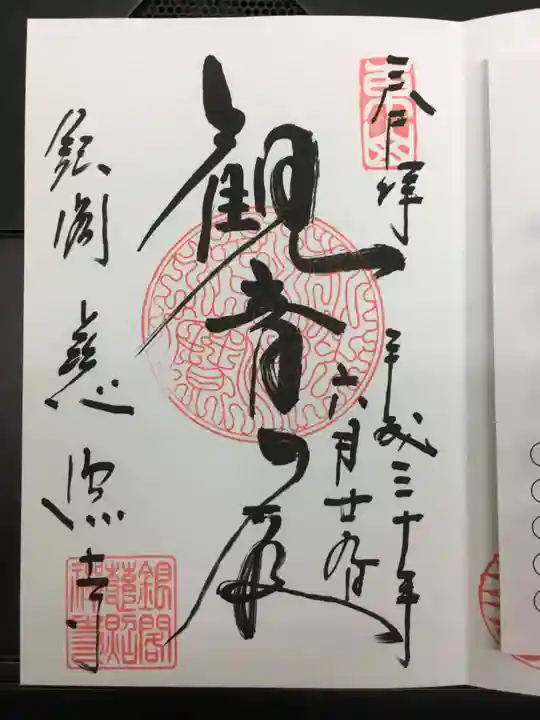 奉拝
平成三十年
六月廿九日
観音殿
銀閣 慈照寺
東山
銀閣
慈照
禅寺